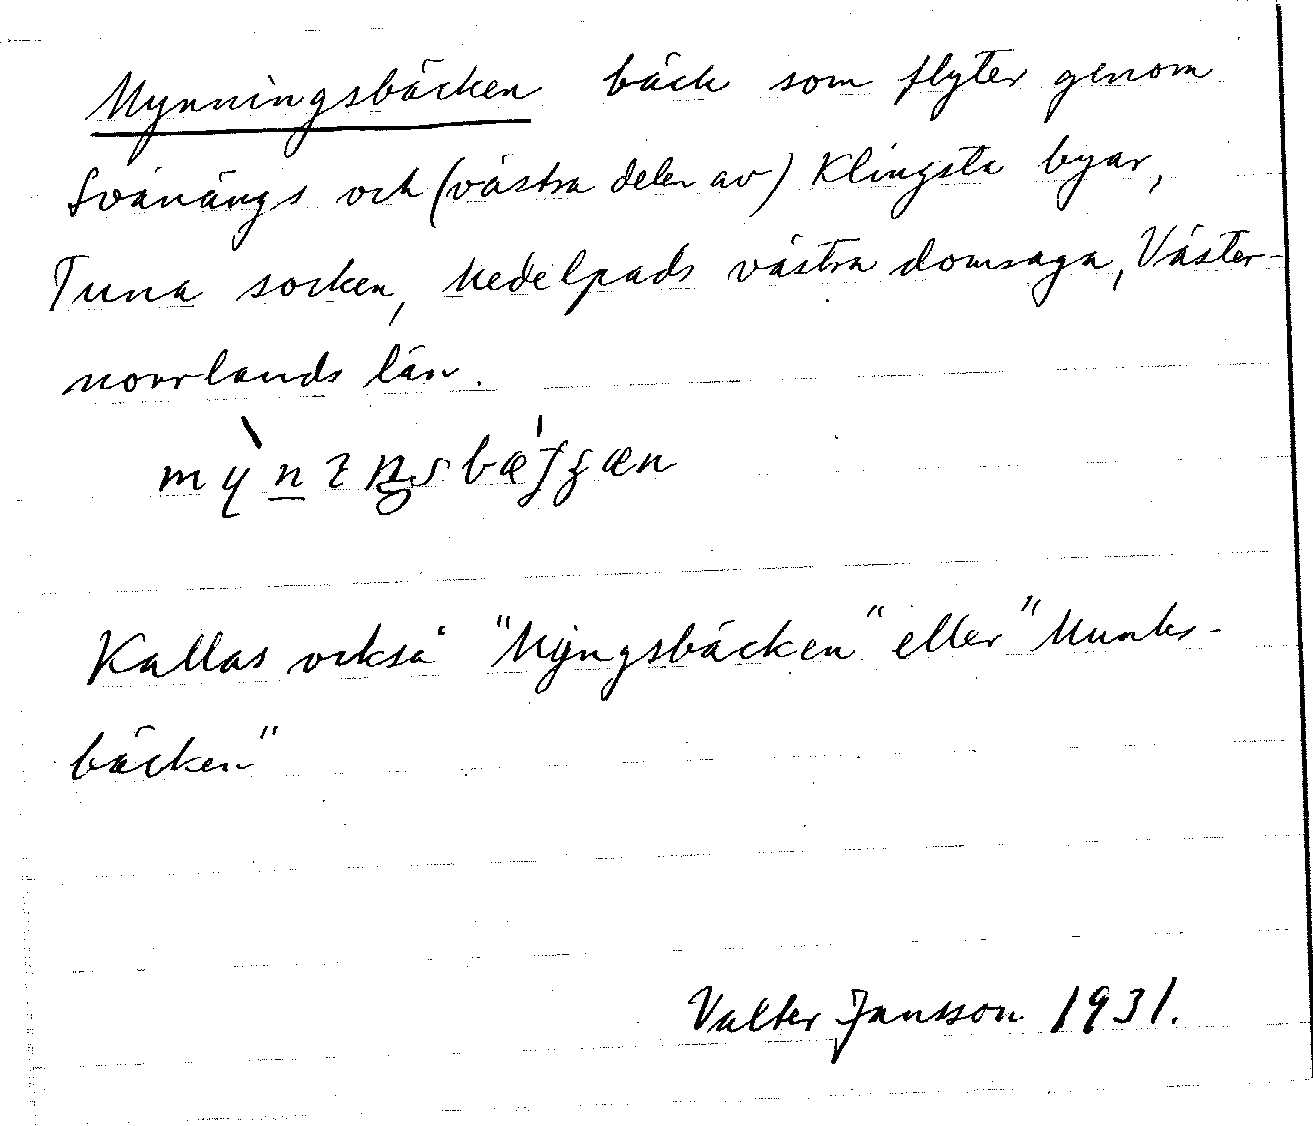 Mynningsbäcken bäck som flyter genom
Svanängs och (västra delen av) Klingsta byar,
Tuna socken, Medelpads västra domsaga, Väster-
norrlands län.
Kallas också "Myngsbäcken" eller "Munks-
bäcken"
Valter Jansson 1931.